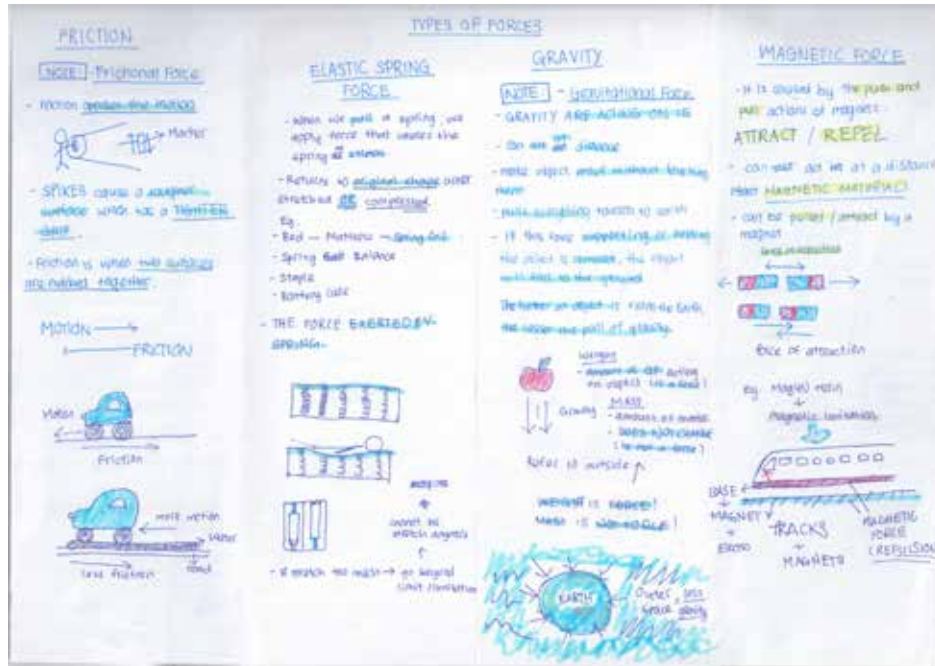 TYPES OF FORCES
FRICTION
NOTE - Frictional Force
- Motion
Marker
- SPIKES cause a
surface which has a TIGHTER
GRIP.
- Friction is when two surfaces
are rubbed together.
MOTION
FRICTION
Motion
Friction
more motion
Water
less friction
road
ELASTIC SPRING
FORCE
- When we pull a spring, we
apply force that causes the
spring to
- Returns to original shape after
stretched OR compressed
Eg.
- Bed — Mattress — Spring
- Spring Balance
- Staple
- THE FORCE EXERTED BY
SPRING.
cannot be
- If stretch too much → go beyond
limit
GRAVITY
NOTE - Gravitational Force
- GRAVITY ARE ACTING ON US
- Can act at distance
- make object move without touching
them
- pull everything towards to earth
- If this force supporting or
the object is removed, the object
will fall to the ground
The further an object is from the Earth,
the lesser the pull of gravity.
Weight
- amount of acting
on object (is a force)
Gravity
MASS
- amount of matter
- DOES NOT CHANGE
(is not a force)
Refer to outside
WEIGHT IS FORCE!
MASS IS NOT FORCE!
EARTH
Outer
Space
less
gravity
MAGNETIC FORCE
- It is caused by the push and
pull actions of magnet.
ATTRACT / REPEL
- can act at a distance
MAGNETIC MATERIALS
- can be pulled / attract by a
magnet
force of attraction
Eg. Maglev train
Magnetic levitation
BASE
MAGNET
TRACKS
MAGNETS
MAGNETIC
FORCE
(REPULSION)